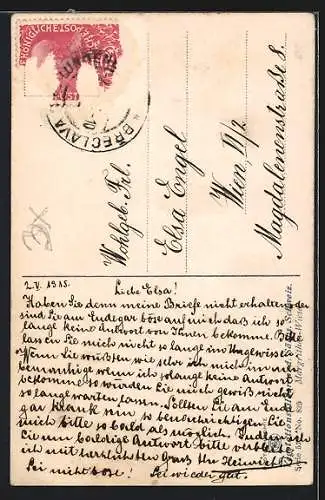 KÖNIGLICHE
BŘECLAVA
Wohlgeb. Frl.
Elsa Engel
Wien, II/2
Magdalenenstraße 8.
2.V. 1915.
Liebe Elsa!
Haben Sie denn meine Briefe nicht erhalten oder
sind Sie am Ende gar böse auf mich daß ich so
lange keine Antwort von Ihnen bekomme. Bitte
lassen Sie mich nicht so lange im Ungewissen
Wenn Sie wüßten wie sehr ich mich
beunruhige wenn ich so lange keine Antwort
bekomme so würden Sie mich gewiß nicht
so lange warten lassen. Sollten Sie am Ende
gar krank sein so benachrichtige Sie
mich bitte so bald als möglich. Indem ich
um baldige Antwort bitte verbleibe
ich mit herzlichsten Gruß Ihr Heinrich
Sei nicht böse! Sei wieder gut.
No. 825